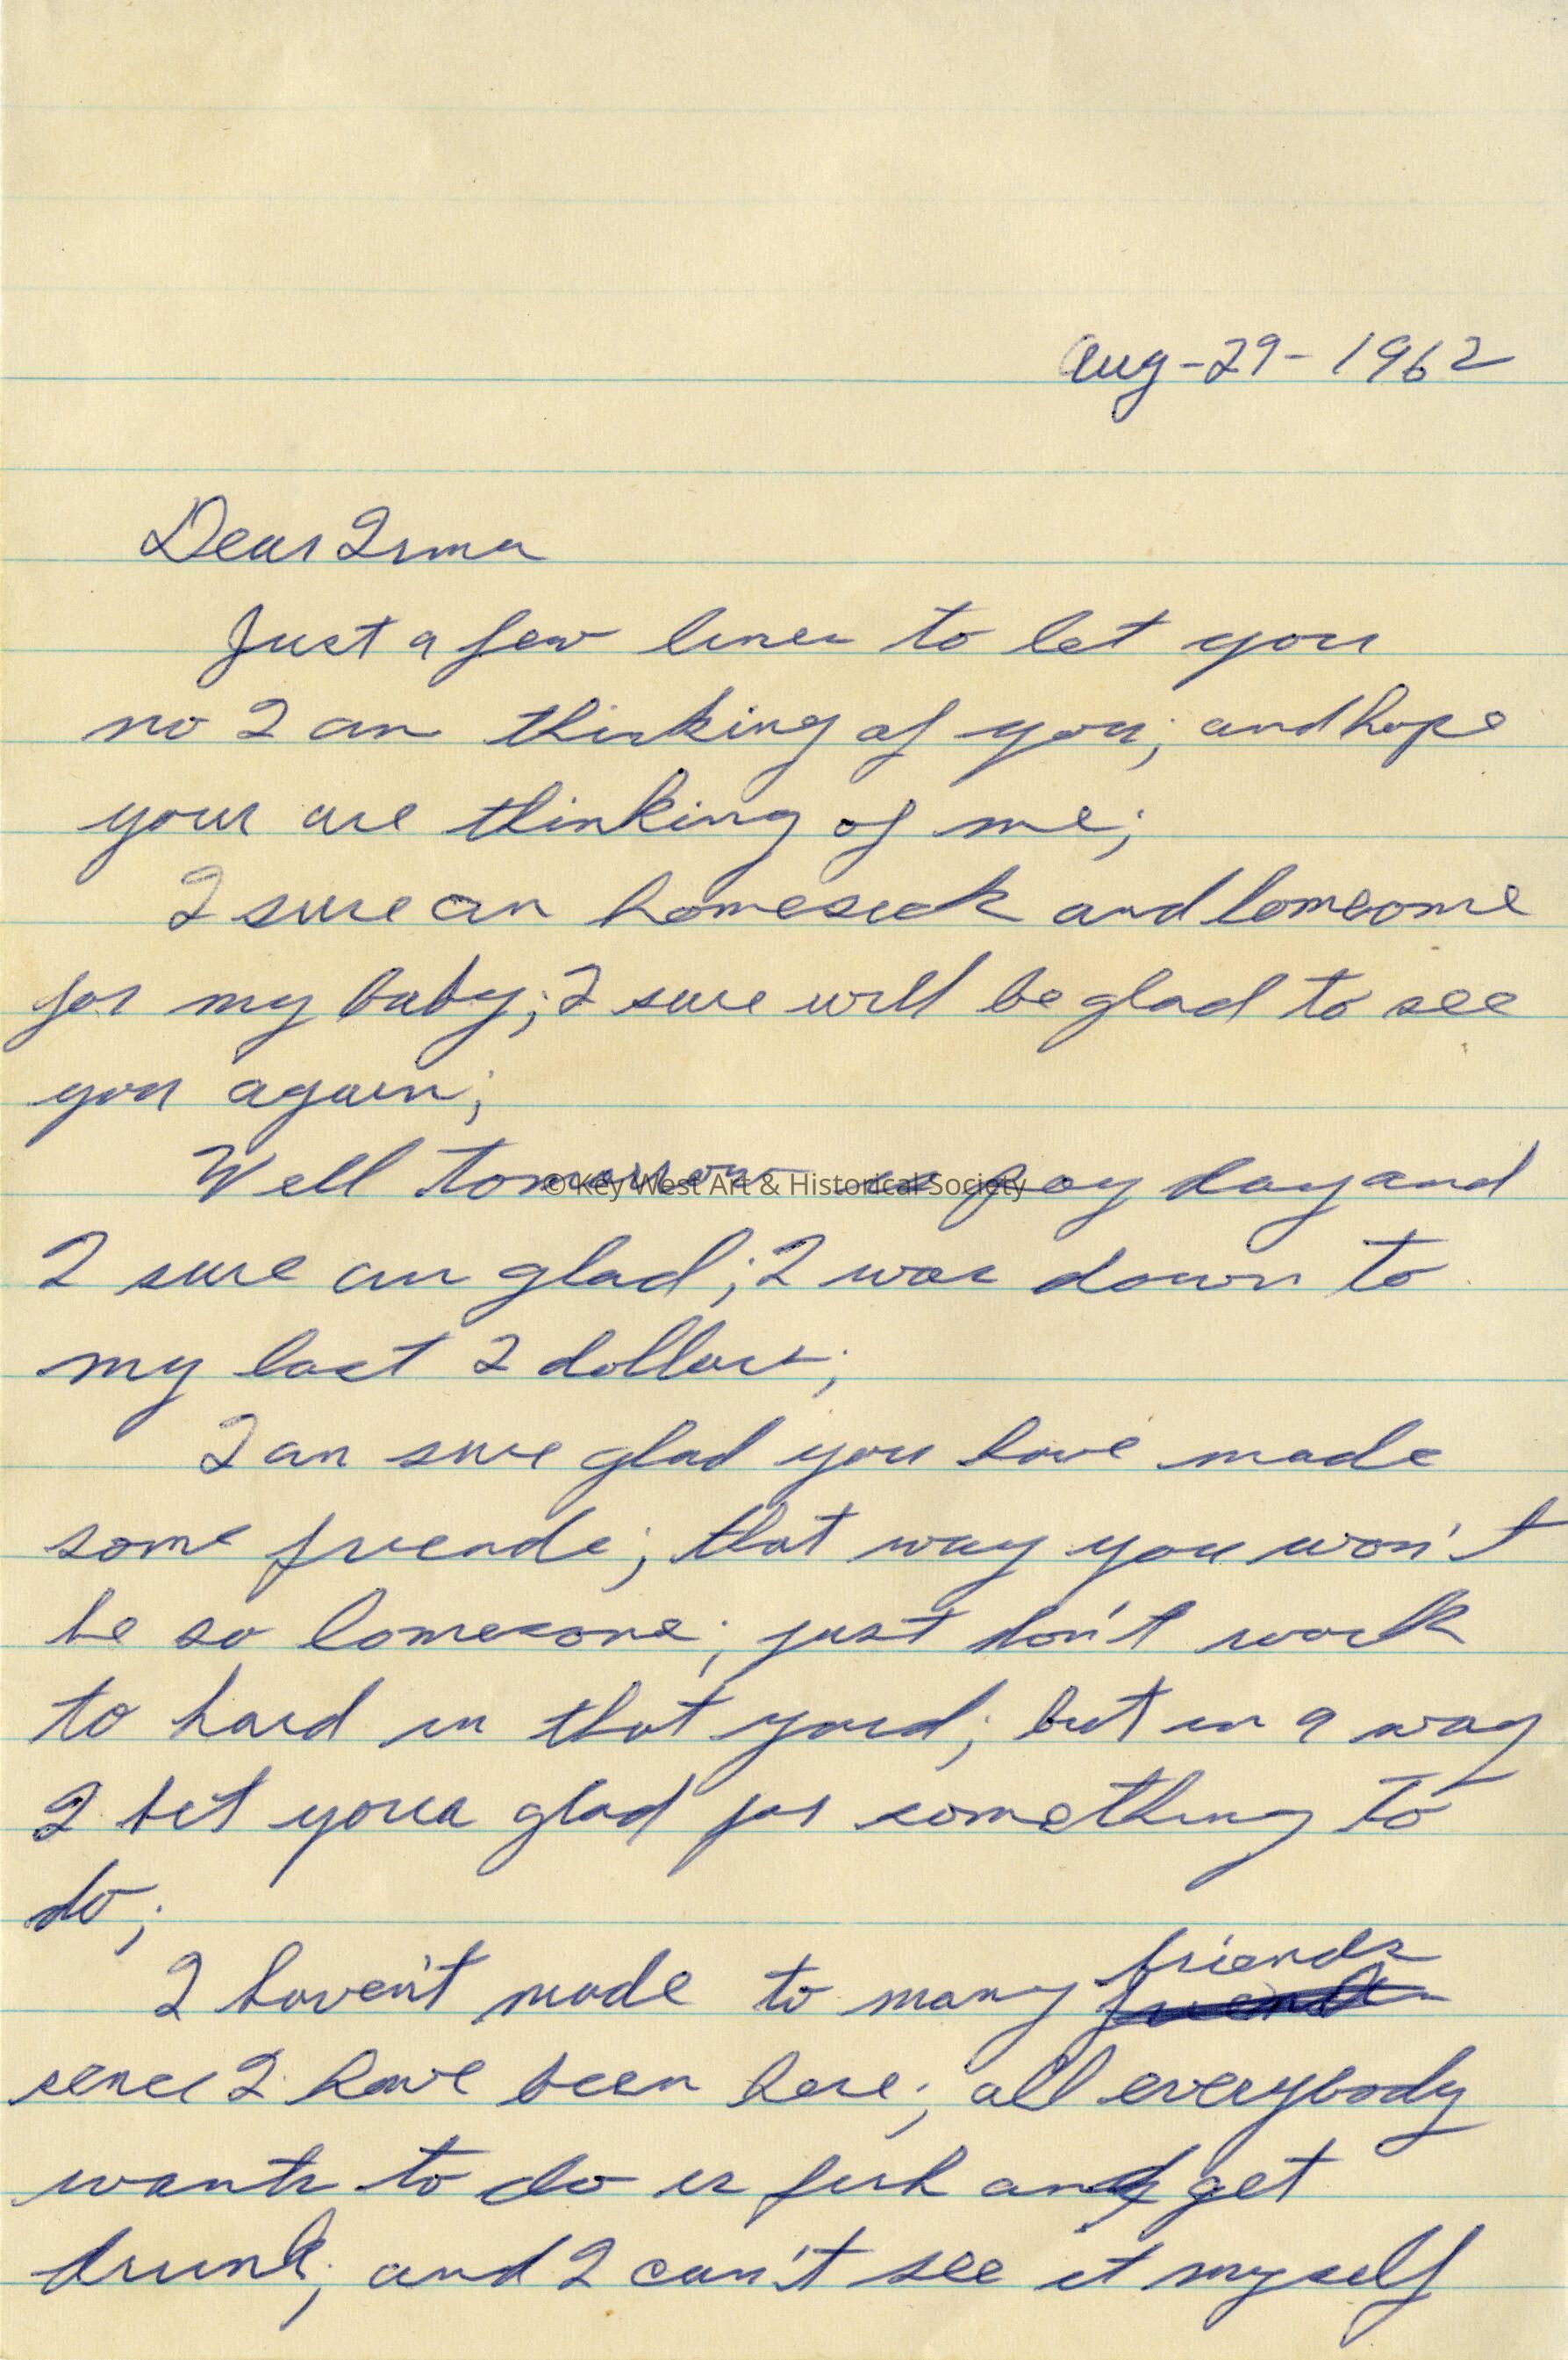 Aug-29-1962
Dear Irma
Just a few lines to let you
no I am thinking of you; and hope
your are thinking of me;
I sure am homesick and lomesome
for my baby; I sure will be glad to see
you again;
Well tomorrow is pay day and
© Key West Art & Historical Society
I sure am glad; I was down to
my last 2 dollars;
I am sure glad you have made
some friends; that way you won't
be so lomesome; just don't work
to hard in that yard; but in a way
I bet youra glad for something to
do;
I haven't made to many friends
sence I have been here; all everybody
wants to do is fish and get
drunk; and I can't see it myself